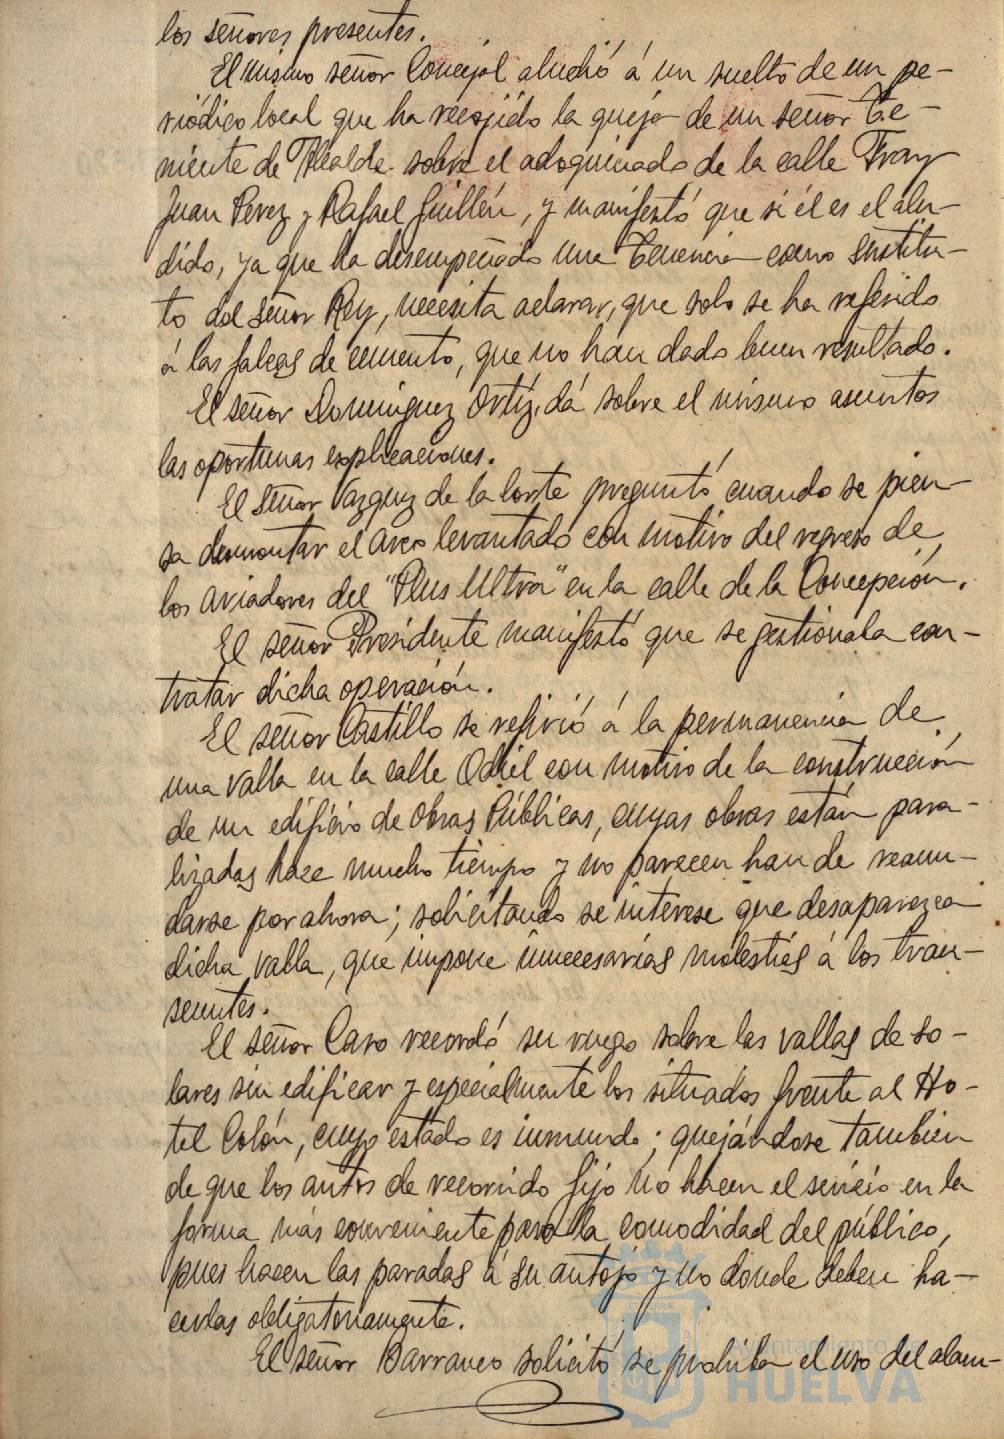 los señores presentes.
El mismo señor Concejal aludió á un suelto de un pe-
riódico local que ha recojido la queja de un señor Te-
niente de Alcalde sobre el adoquinado de la calle Fray
Juan Perez y Rafael Guillén, y manifestó que si él es el alu-
dido, ya que ha desempeñado una Tenencia como sustitu-
to del señor Rey, necesita aclarar, que solo se ha referido
á las falcas de cemento, que no han dado buen resultado.
El señor Dominguez Ortíz, dá sobre el mismo asuntos
las oportunas explicaciones.
El Señor Vazquez de la Corte preguntó cuando se pien-
sa desmontar el arco levantado con motivo del regreso de
los aviadores del "Plus Ultra" en la calle de la Concepción.
El señor Presidente manifestó que se gestionaba con-
tratar dicha operación.
El señor Castillo se refirió á la permanencia de
una valla en la calle Odiel con motivo de la construcción
de un edificio de Obras Públicas, cuyas obras están para-
lizadas hace mucho tiempo y no parecen han de reanu-
darse por ahora; solicitando se interese que desaparezca
dicha valla, que impone innecesarias molestias á los tran-
seuntes.
El señor Caro recordó su ruego sobre las vallas de so-
lares sin edificar y especialmente los situados frente al Ho-
tel Colón, cuyo estado es inmundo; quejándose tambien
de que los autos de recorrido fijo no hacen el servicio en la
forma más conveniente para la comodidad del público,
pues hacen las paradas á su antojo y no donde deben ha-
cerlas obligatoriamente.
El señor Barranco solicitó se prohiba el uso del alam-
Ayuntamiento de
HUELVA